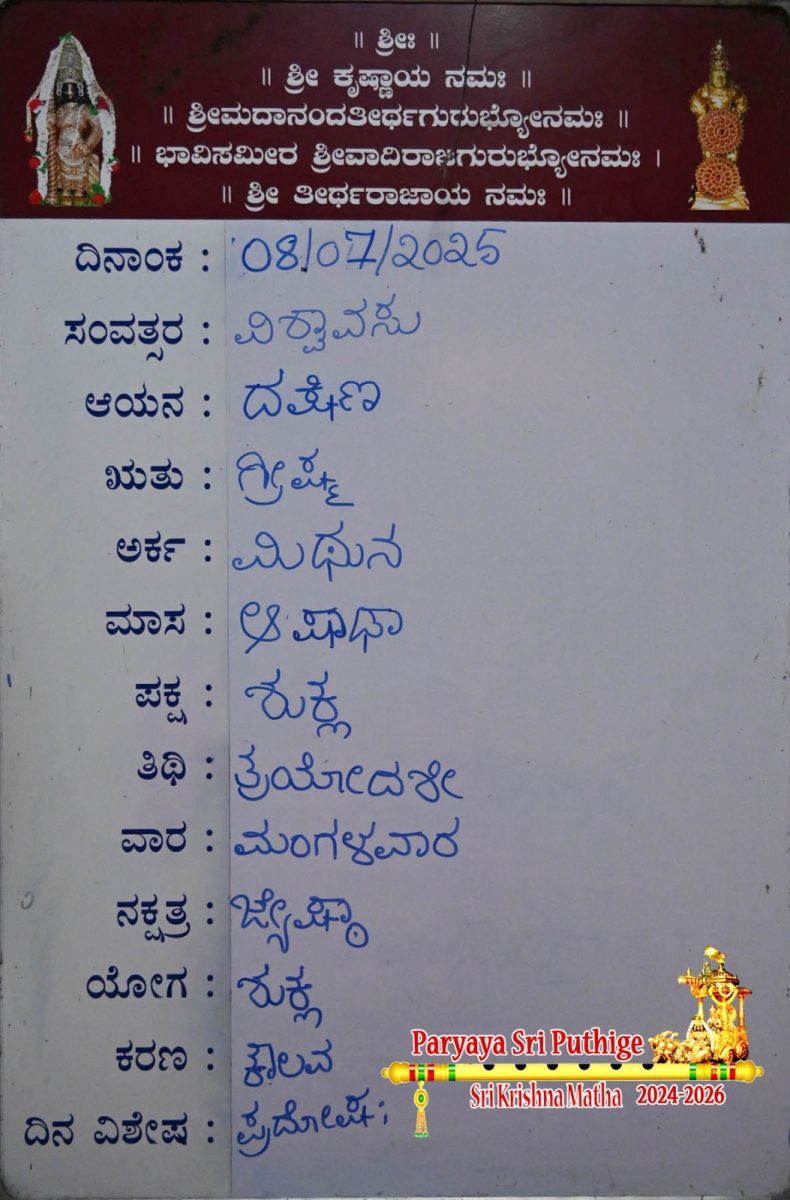 ॥ ಶ್ರೀಃ ॥
॥ ಶ್ರೀ ಕೃಷ್ಣಾಯ ನಮಃ ॥
॥ ಶ್ರೀಮದಾನಂದತೀರ್ಥಗುರುಭ್ಯೋನಮಃ ॥
॥ ಭಾವಿಸಮೀರ ಶ್ರೀವಾದಿರಾಜಗುರುಭ್ಯೋನಮಃ ।
॥ ಶ್ರೀ ತೀರ್ಥರಾಜಾಯ ನಮಃ ॥
ದಿನಾಂಕ : 08/07/2025
ಸಂವತ್ಸರ : ವಿಶ್ವಾವಸು
ಆಯನ : ದಕ್ಷಿಣ
ಋತು : ಗ್ರೀಷ್ಮ
ಅರ್ಕ : ಮಿಥುನ
ಮಾಸ : ಆಷಾಢಾ
ಪಕ್ಷ : ಶುಕ್ಲ
ತಿಥಿ : ತ್ರಯೋದಶೀ
ವಾರ : ಮಂಗಳವಾರ
ನಕ್ಷತ್ರ : ಜ್ಯೇಷ್ಠಾ
ಯೋಗ : ಶುಕ್ಲ
ಕರಣ : ಕೌಲವ
ದಿನ ವಿಶೇಷ : ಪ್ರದೋಷ:
Paryaya Sri Puthige
Sri Krishna Matha 2024-2026